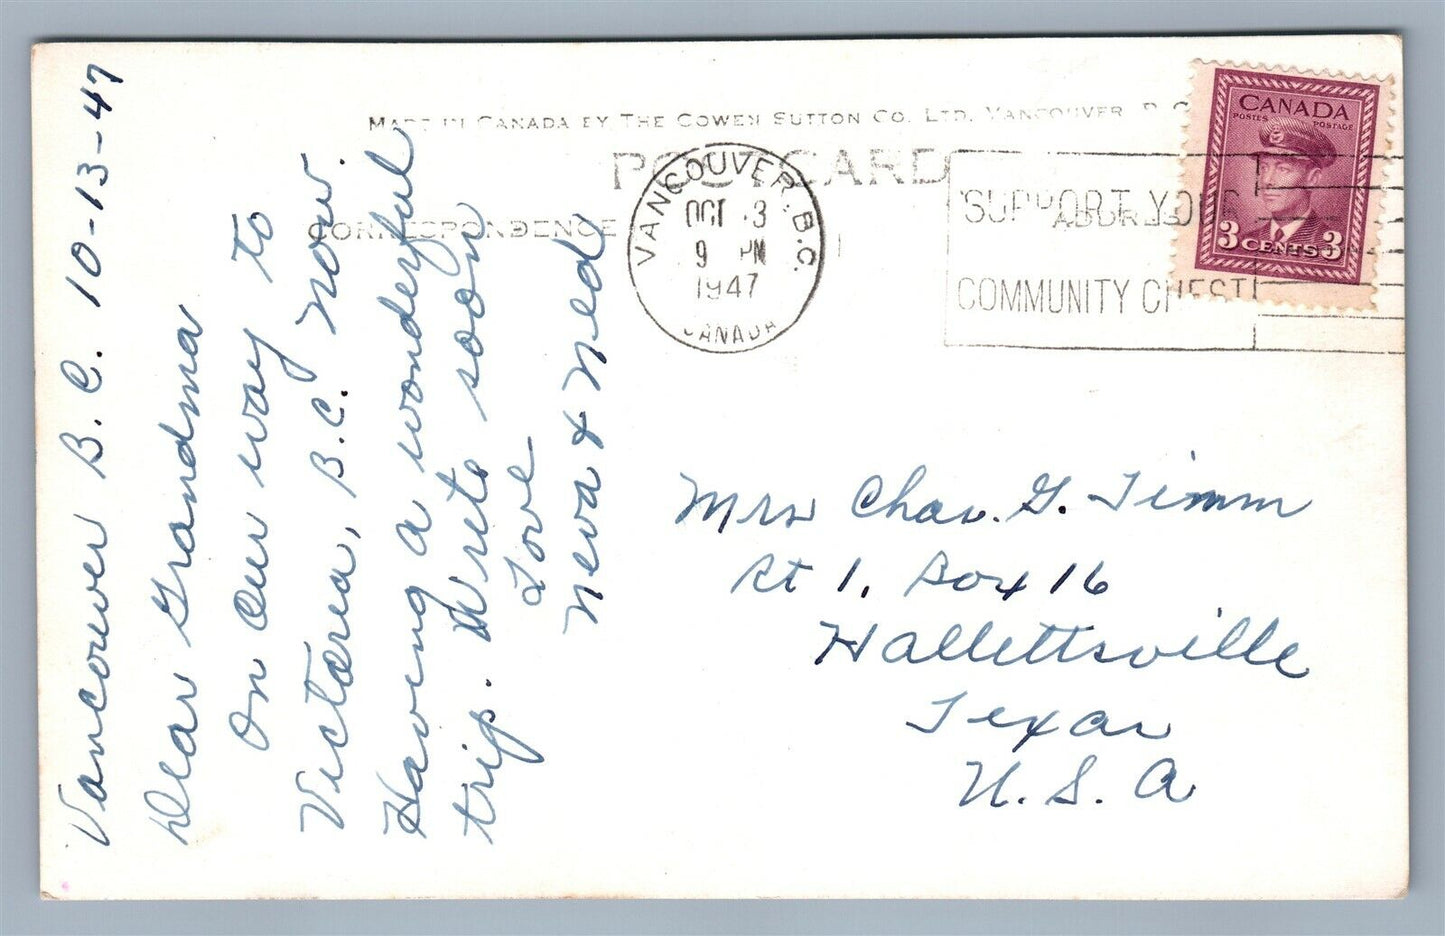 MADE IN CANADA BY THE COWEN SUTTON CO. LTD. VANCOUVER B.C.
POST CARD
CORRESPONDENCE
ADDRESS
VANCOUVER, B.C.
OCT 13
9 PM
1947
CANADA
SUPPORT YOUR
COMMUNITY CHEST
CANADA
POSTES POSTAGE
3 CENTS 3
Vancouver B.C. 10-13-47
Dear Grandma
On our way to
Victoria, B.C. now.
Having a wonderful
trip. Write soon
Love
Neva & Ned
Mrs Chas. G. Timm
Rt 1, Box 16
Hallettsville
Texas
U.S.A